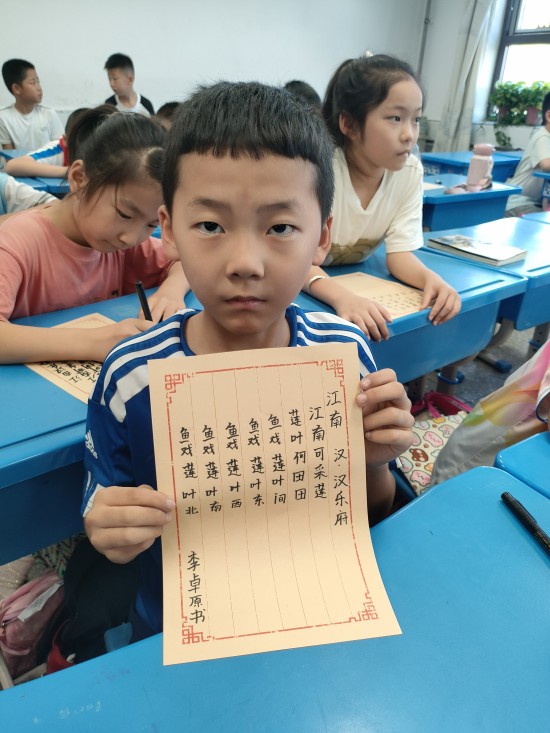 江南 汉·汉乐府
江南可采莲
莲叶何田田
鱼戏莲叶间
鱼戏莲叶东
鱼戏莲叶西
鱼戏莲叶南
鱼戏莲叶北
李卓原书